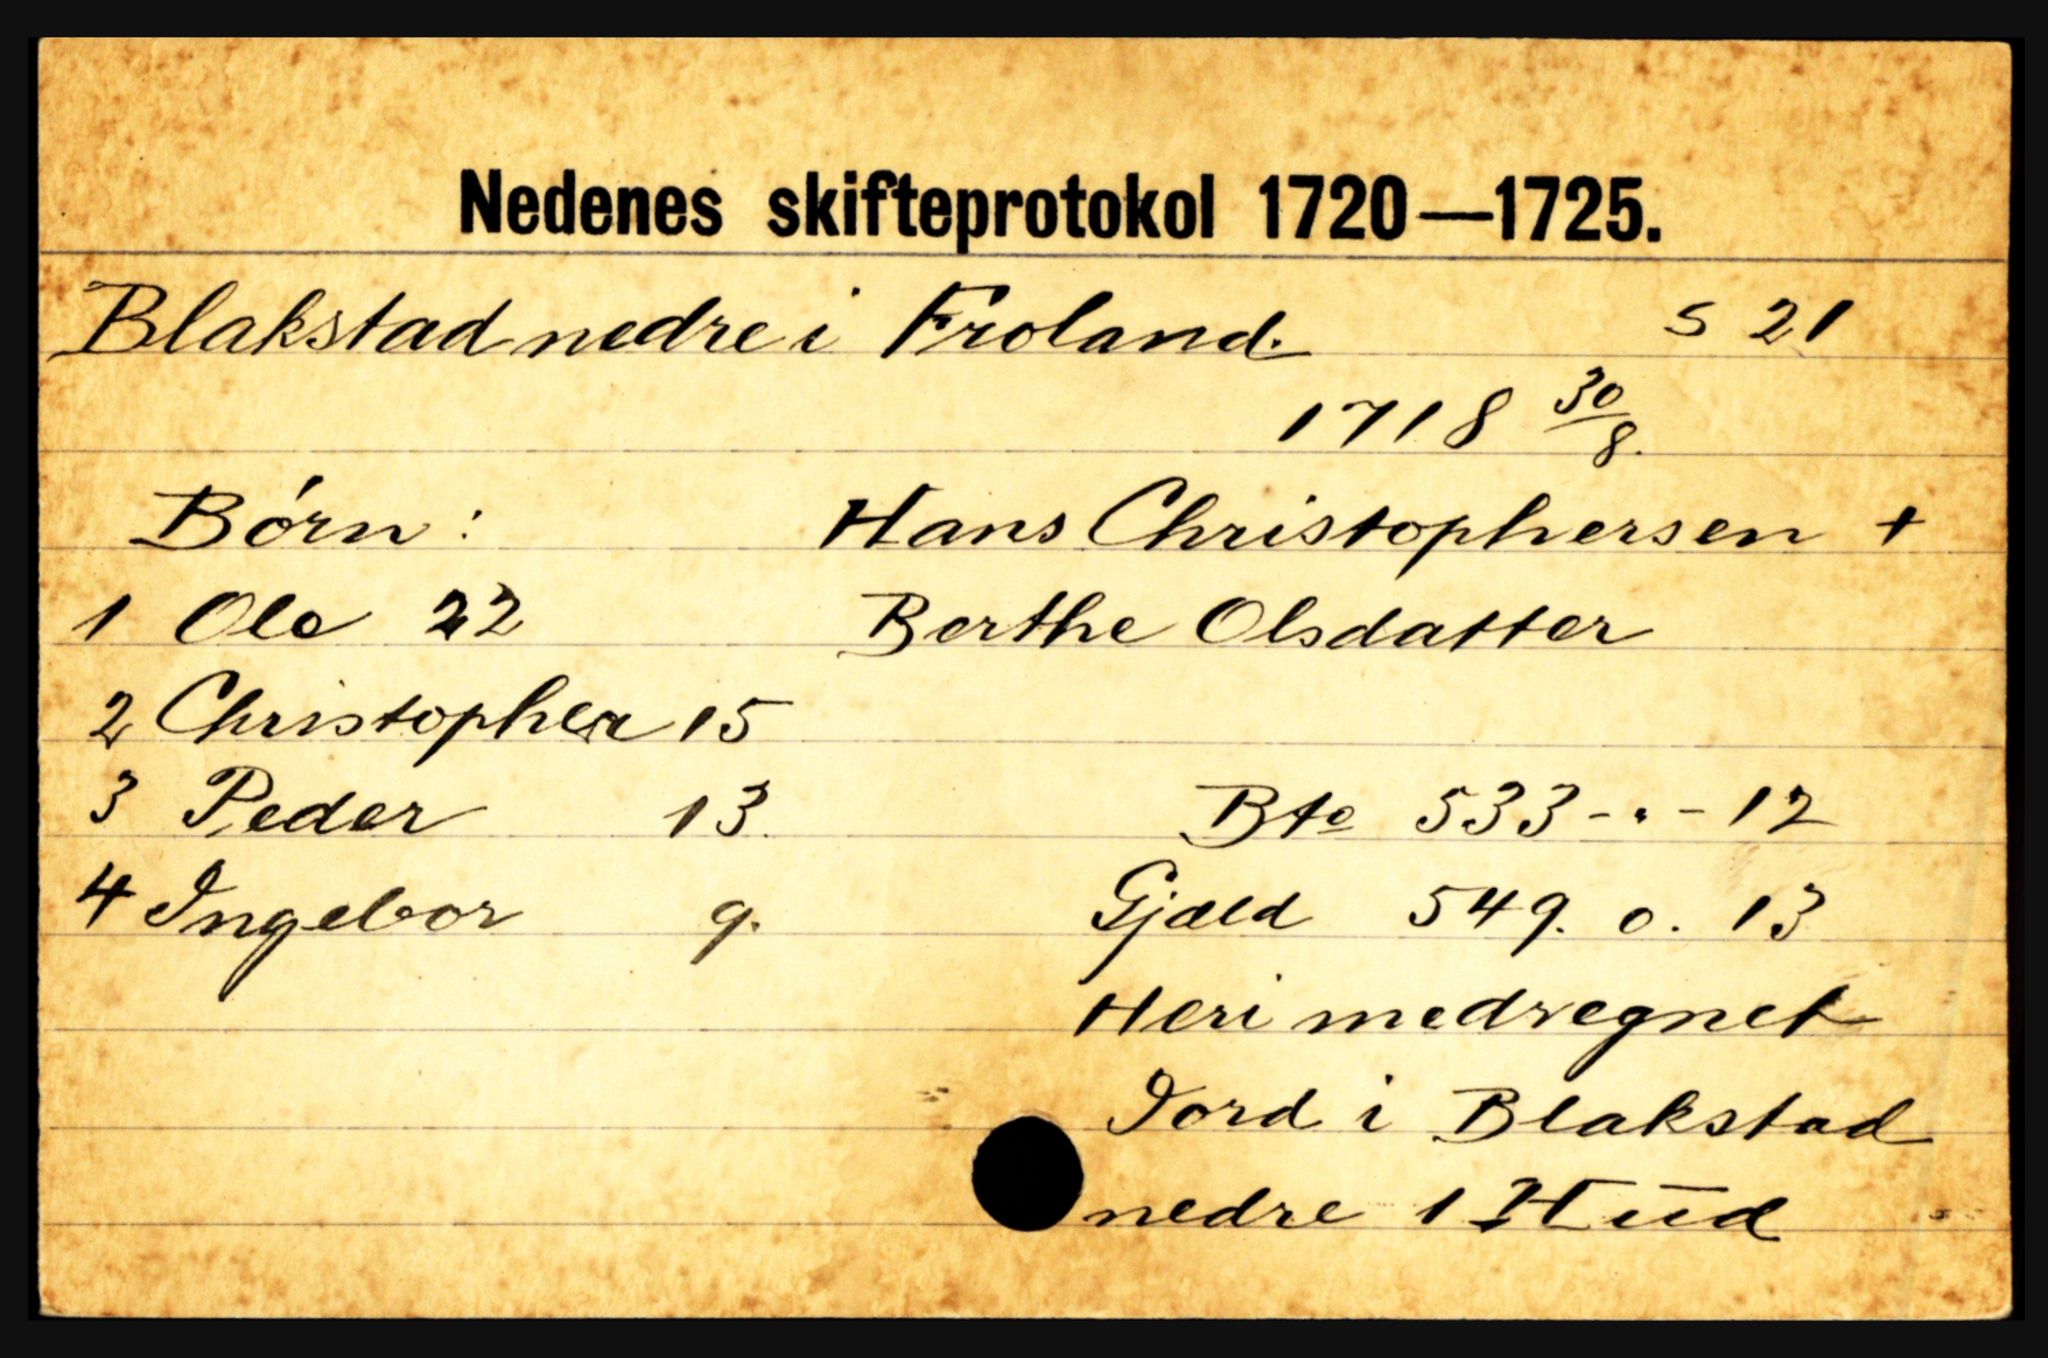 Nedenes skifteprotokol 1720—1725.
Blakstad nedre i Froland. S 21
1718 30/8.
Børn: Hans Christophersen +
1 Ole 22 Berthe Olsdatter
2 Christopher 15
3 Peder 13. Bto 533-"-12
4 Ingebor 9. Gjæld 549. 0. 13
Heri medregnet
Jord i Blakstad
nedre 1 Hud